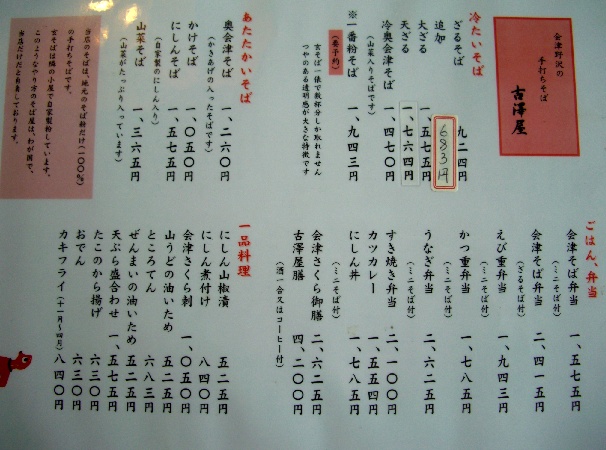 会津野沢の
手打ちそば
古澤屋
冷たいそば
ざるそば 九二四円
追加 683円
大ざる 一、五七五円
天ざる 一、七六四円
冷奥会津そば 一、四七〇円
（山菜入りそばです）
※一番粉そば 一、九四三円
（要予約）
玄そば一俵で数杯分しか取れません
つやのある透明感が大きな特徴です
あたたかいそば
奥会津そば 一、二六〇円
（かきあげの入ったそばです）
かけそば 一、〇五〇円
にしんそば 一、五七五円
（自家製のにしん）
山菜そば 一、三六五円
（山菜がたっぷり入っています）
当店のそばは、地元のそば粉だけ（一〇〇％）
の手打ちそばです。
玄そばは隣の小屋で自家製粉しています。
このようなやり方のそば屋は、わが国で、
当店だけだと自負しております。
ごはん、弁当
会津そば弁当 一、五七五円
（ミニそば付）
会津そば弁当 二、四一五円
（ざるそば付）
えび重弁当 一、九四三円
（ミニそば付）
かつ重弁当 一、七八五円
（ミニそば付）
うなぎ弁当 二、六二五円
（ミニそば付）
すき焼き弁当 二、一〇〇円
カツカレー 一、五五四円
にしん丼 一、三六五円
（ミニそば付）
会津さくら御膳 二、六二五円
古澤屋膳 四、二〇〇円
（酒一合又はコーヒー付）
一品料理
にしん山椒漬 五二五円
にしん煮付け 八四〇円
会津さくら刺 一、〇五〇円
山うどの油いため 五二五円
ところてん 六八三円
ぜんまいの油いため 五二五円
天ぷら盛合わせ 一、五七五円
たこのから揚げ 六三〇円
おでん 六三〇円
カキフライ（十一月〜四月） 八四〇円